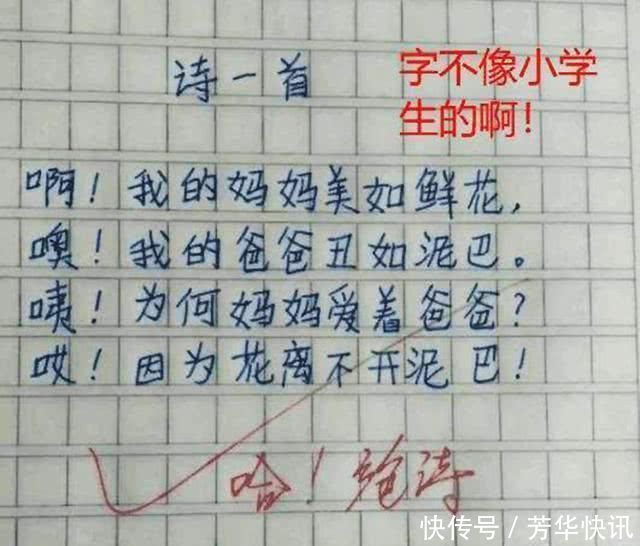 诗一首
字不像小学
生的啊!
啊!我的妈妈美如鲜花,
噢!我的爸爸丑如泥巴。
咦!为何妈妈爱着爸爸?
哎!因为花离不开泥巴!
哈!绝诗
快传号/芳华快讯